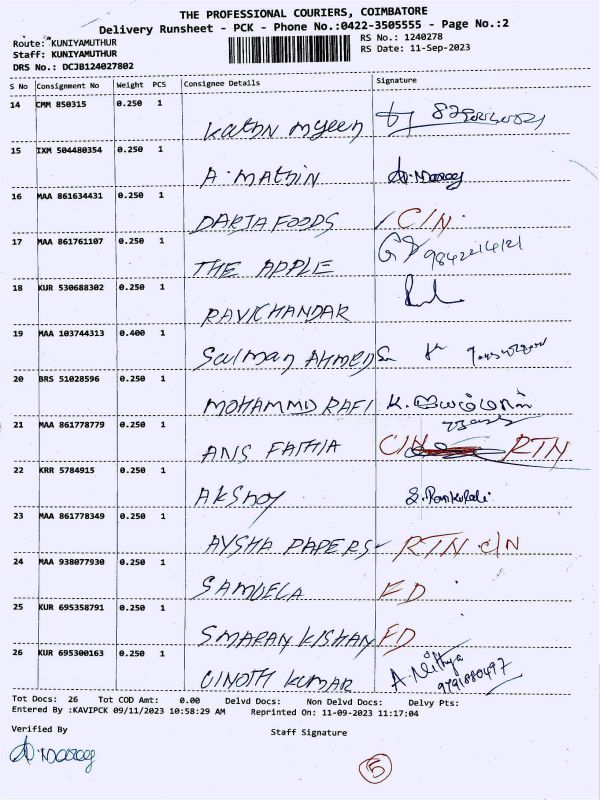 THE PROFESSIONAL COURIERS, COIMBATORE
Delivery Runsheet - PCK - Phone No.:0422-3505555 - Page No.:2
Route: KUNIYAMUTHUR
RS No.: 1240278
Staff: KUNIYAMUTHUR
RS Date: 11-Sep-2023
DRS No.: DCJB124027802
S No Consignment No Weight PCS Consignee Details Signature
14 CMM 850315 0.250 1
15 IXM 504480354 0.250 1 A. MATHIN
16 MAA 861634431 0.250 1 DARJA FOODS C/N
17 MAA 861761107 0.250 1 THE APPLE
18 KUR 530688302 0.250 1 RAVICHANDAR
19 MAA 103744313 0.400 1 Salman AHMED
20 BRS 51028596 0.250 1 MOHAMMD RAFI
21 MAA 861778779 0.250 1 ANS FATHIA C/N RTN
22 KRR 5784915 0.250 1 AKShoy
23 MAA 861778349 0.250 1 AYSHA PAPERS RTN C/N
24 MAA 938077930 0.250 1 SAMUELA FD
25 KUR 695358791 0.250 1 SMARAN KISHAN FD
26 KUR 695300163 0.250 1 VINOTH KUMAR A. Nithya
9791880497
Tot Docs: 26 Tot COD Amt: 0.00 Delvd Docs: Non Delvd Docs: Delvy Pts:
Entered By :KAVIPCK 09/11/2023 10:58:29 AM Reprinted On: 11-09-2023 11:17:04
Verified By
Staff Signature
5